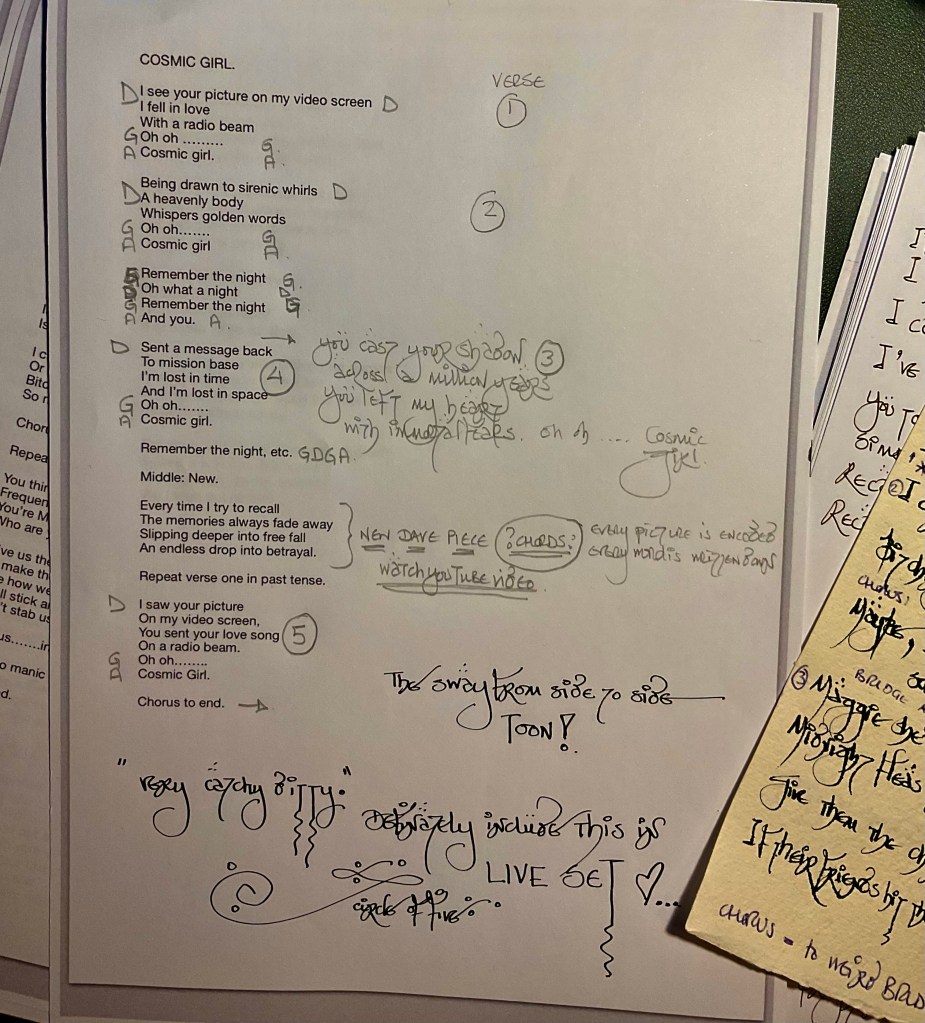 COSMIC GIRL.
VERSE
D I see your picture on my video screen D
1
I fell in love
With a radio beam
G Oh oh ......... G
A Cosmic girl. A
D Being drawn to sirenic whirls D
A heavenly body
2
Whispers golden words
G Oh oh....... G
A Cosmic girl A
G Remember the night G
D Oh what a night D
G Remember the night G
A And you. A.
D Sent a message back →
To mission base
I'm lost in time
4
And I'm lost in space
G Oh oh.......
A Cosmic girl.
you cast your shadow 3
across a million years
you left my heart
with immortal tears. oh oh .... Cosmic
girl.
Remember the night, etc. GDGA.
Middle: New.
Every time I try to recall
The memories always fade away
Slipping deeper into free fall
An endless drop into betrayal.
NEW DAVE PIECE ?CHORDS?
WATCH YOUTUBE VIDEO
EVERY PICTURE IS ENCODED
EVERY WORD IS WRITTEN DOWN
Repeat verse one in past tense.
D I saw your picture
On my video screen,
You sent your love song
5
On a radio beam.
G Oh oh........
A Cosmic Girl.
Chorus to end. →
The sway from side to side
TOON!
"very catchy ditty."
Definately include this in
LIVE SET ♡...
circle of five
I c
Or
Bitc
So r
Chor
Repea
You thin
Frequen
You're M
Who are
ve us the
make the
e how we
ll stick a
't stab us
us.......in
o manic
d.
I
I
I c
I've
you to
Rec
Rec
2 I
CHORUS:
Maybe,
BRIDGE
3 Maggie she
Midnight
Give them the
If their friends hit th
CHORUS = to WEIRD BRID